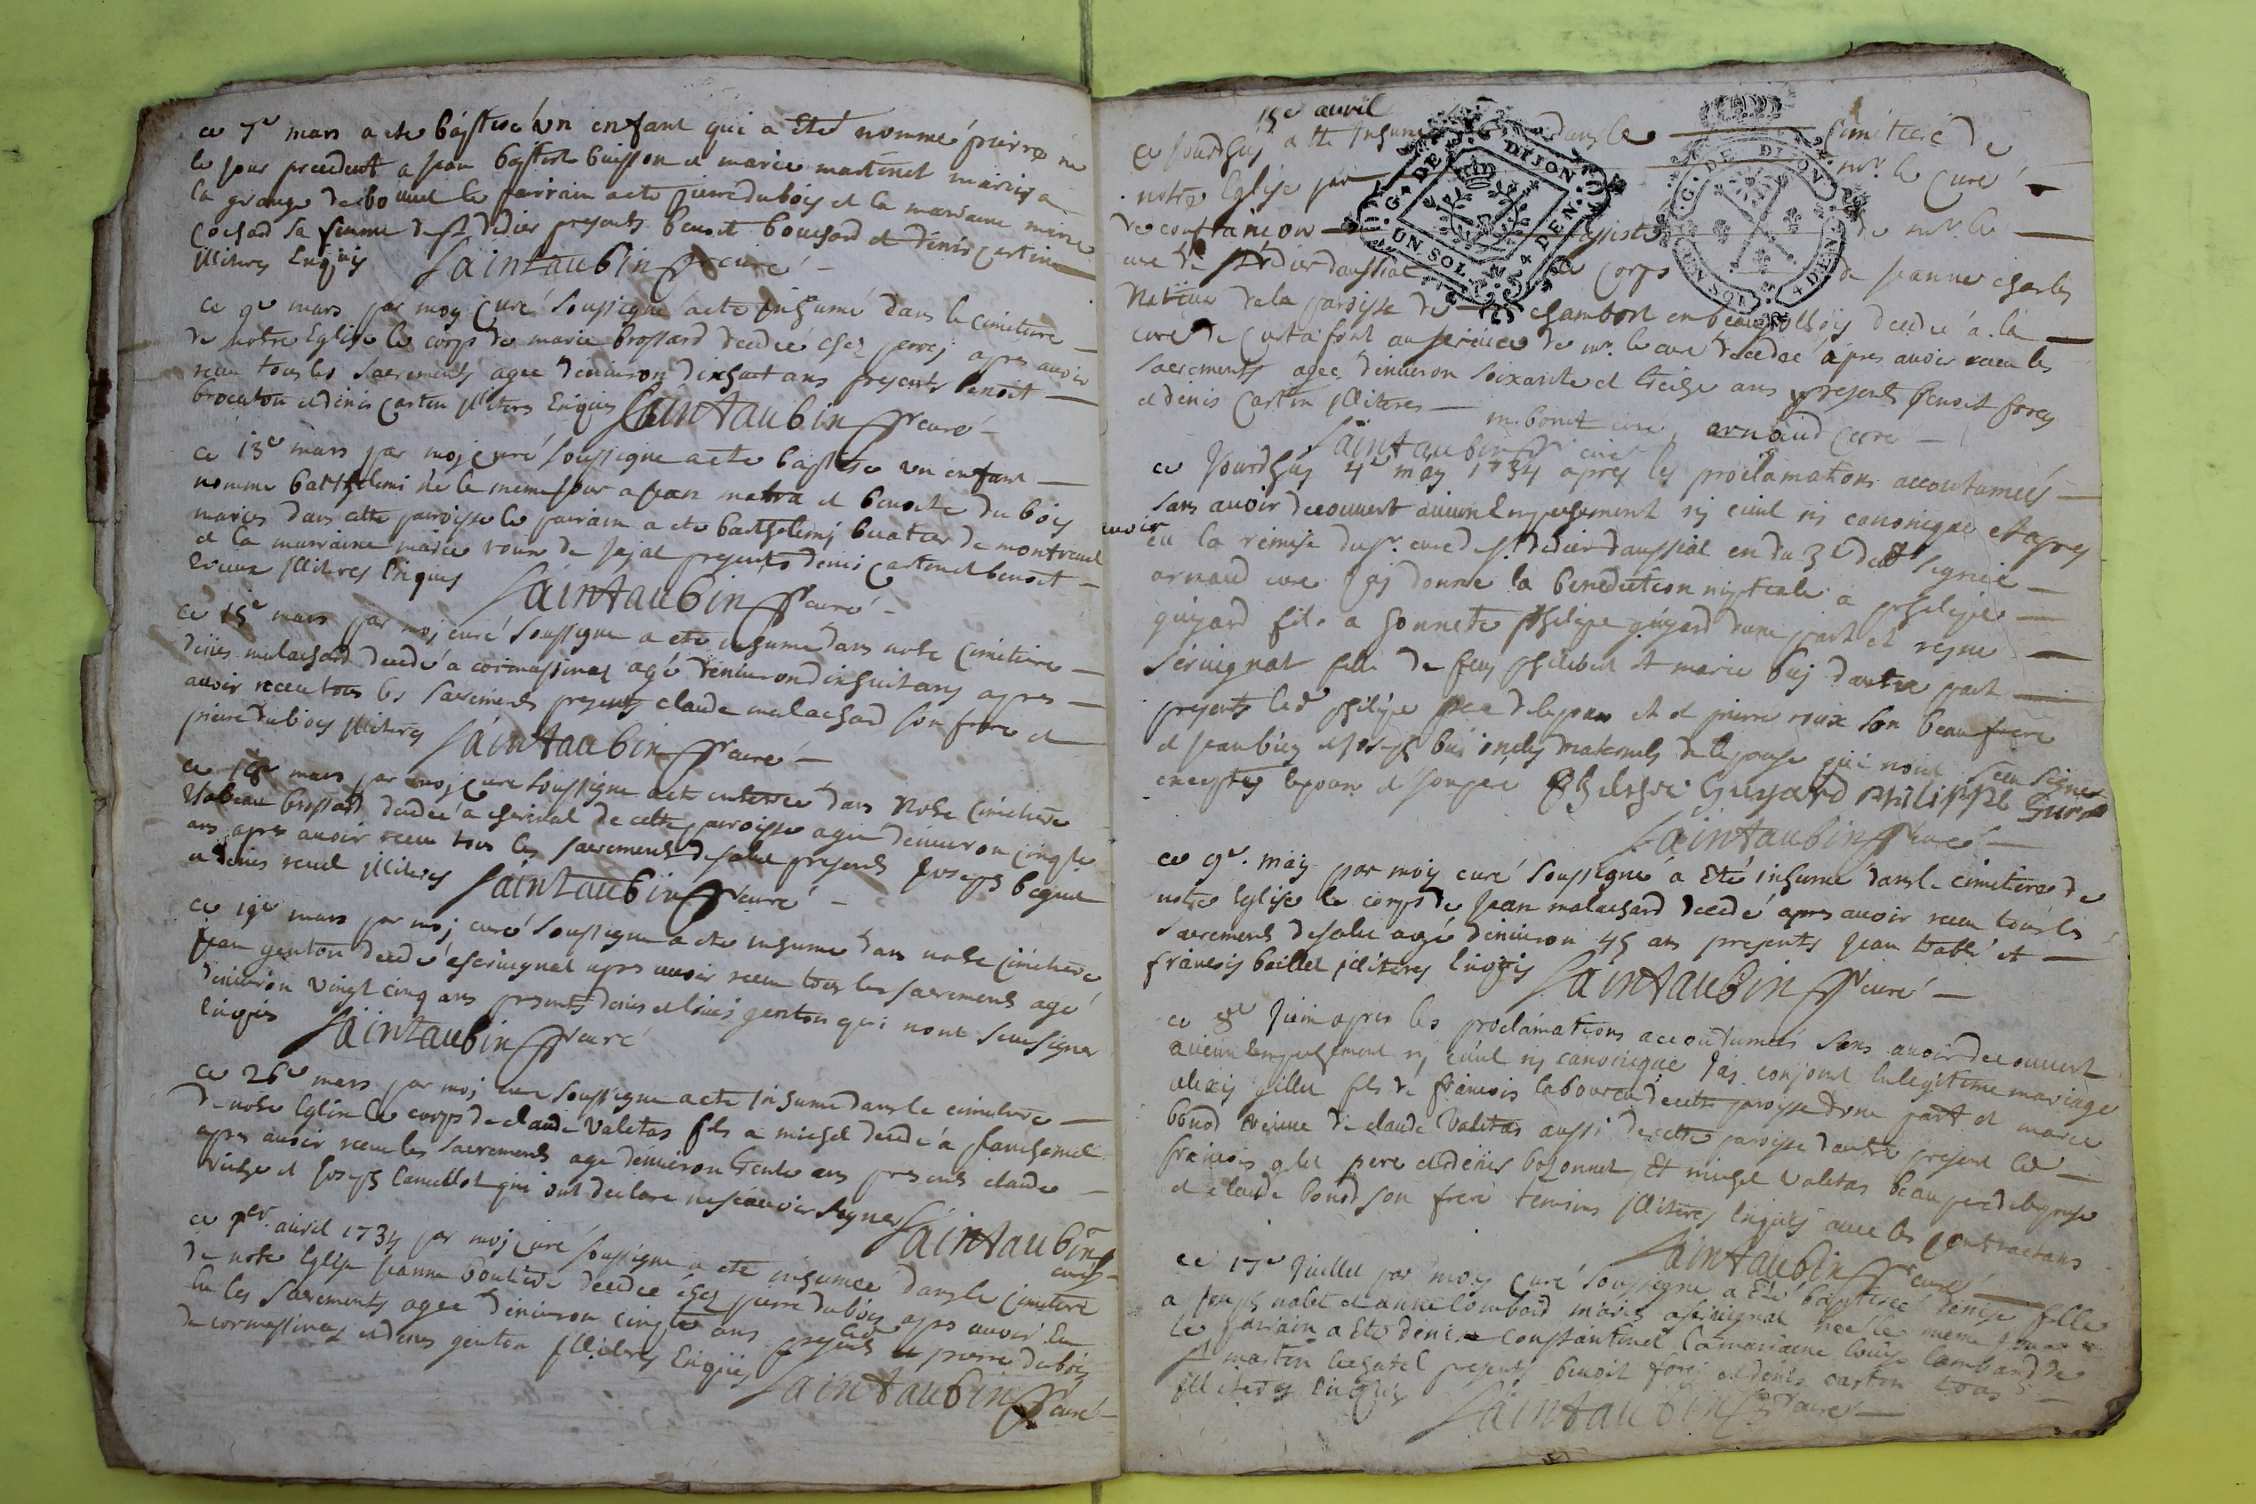 ce 7e mars a ete baptisé un enfant qui a eté nommé pierre né
le jour precedent a jean baptiste buisson et marie martinet mariés a
la grange de bouuel le parrain a ete pierre dubois et la marraine
cochard sa femme de st didier presents benoit bouchard et denis cartin
illiteres enquis Saintaubin curé
ce 9e mars par moy curé soussigné a ete inhumé dans le cimetiere
de notre Eglise le corps de marie brossard decedée chez apres avoir
receu tous les sacrements agée denviron dixhuit ans presents benoit
et denis cartin illiteres Enquis Saintaubin curé
ce 13e mars par moj curé soussigné a ete baptisé un enfant
nomme barthelemi né le meme jour a jean matra et benoite du bois
mariés dans cette paroisse le parrain a ete barthelemj de montreuel
et la marraine marie roux de jajat presents denis cartin et benoit
illiteres Enquis Saintaubin curé
ce 15e mars par moj curé soussigné a ete inhumé dans notre cimetiere
denis malachard decedé a cormassinet agé denviron dixhuit ans apres
avoir receu tous les sacrements presents claude malachard son frere et
pierre dubois illiteres Saintaubin curé
ce 18e mars par moj curé soussigné a ete enterrée dans notre cimetiere
brossard decedée a de cette paroisse agée denviron cinqte
ans apres avoir receu tous les sacrements de salut presents joseph
et denis illiteres Saintaubin curé
ce 19e mars par moj curé soussigné a ete inhumé dans notre cimetiere
jean genton decedé a seruignat apres avoir receu tous les sacrements agé
denviron vingt cinq ans presents denis et genton qui nont sceu signer
Enquis Saintaubin curé
ce 26e mars par moj curé soussigné a ete inhumé dans le cimetiere
de notre Eglise le corps de claude valetas fils a michel decedé a
apres avoir receu les sacrements agé denviron trente ans presents claude
et joseph qui ont declare ne scavoir signer Saintaubin
curé
ce 1er avril 1734 par moj curé soussigné a ete inhumée dans le cimetiere
de notre Eglise jeanne decedée chez pierre dubois apres avoir eu
les sacrements agée denviron cinqte ans presents led pierre dubois
de cormassinet et denis genton illiteres Enquis
Saintaubin curé
15e avril
Ce jourdhuy a ete Inhumé dans le cimetiere de
notre Eglise par mr. le curé
de confrançon assisté de mr. le
curé de st didier daussiat le corps de jeanne charles
Native de la paroisse de chambost en beaujollois decedée a la
cure de curtafont au service de mr. le curé decedée apres avoir receu les
sacrements agée denviron soixante et treize ans presents benoit forey
et denis cartin illiteres bonet curé arnaud curé
Saintaubin curé
G. DE DIJON
UN SOL 4 DEN.
G. DE DIJON
UN SOL 4 DEN.
ce jourdhuy 4e may 1734 apres les proclamations accoutumées
sans avoir decouvert aucun Empeschement ny civil ny canonique et apres
avoir
eu la remise du sr. curé de st. didier daussiat en du 3e dudt signée
arnaud curé jaj donné la benediction nuptiale a philippe
guyard fils a honnete philipe guyard dune part et reyne
seruignat fille de feu philibert et marie buj dautre part
presents led philipe pere de lepoux et et pierre roux son beaufrere
et jean buj et joseph buj oncles maternels de lepouse qui nont sceu signer
exceptés lepoux et son pere Philippe Guyard PHILIPPE
Saintaubin curé
ce 9e. may par moy curé soussigné a eté inhumé dans le cimetiere de
notre Eglise le corps de jean malachard decedé apres avoir receu tous les
sacrements de salut agé denviron 45 ans presents jean et
françois baillet illiteres Enquis Saintaubin curé
ce 8e juin apres les proclamations accoutumées sans avoir decouvert
aucun Empeschement ny civil ny canonique jaj conjoint en legitime mariage
alexis gillet fils de françois laboureur de cette paroisse dune part et marie
bonod veuve de claude valetas aussi de cette paroisse dautre present led
françois gillet pere et denis bozonnet et michel valetas beaupere de lepouse
et claude bonod son frere temoins illiteres Enquis avec les contractans
Saintaubin curé
ce 17e juillet par moy curé soussigné a eté baptisée denise fille
a joseph nalet et anne lombard mariés a seruignat née le meme jour
le parrain a eté denis constantinet la marraine louise lombard de
st martin le chatel presents benoit forej et denis cartin tous
illiteres enquis Saintaubin curé